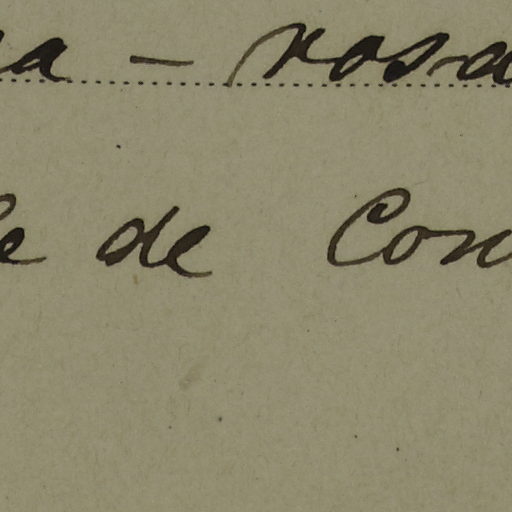 a - rosa
e de Con